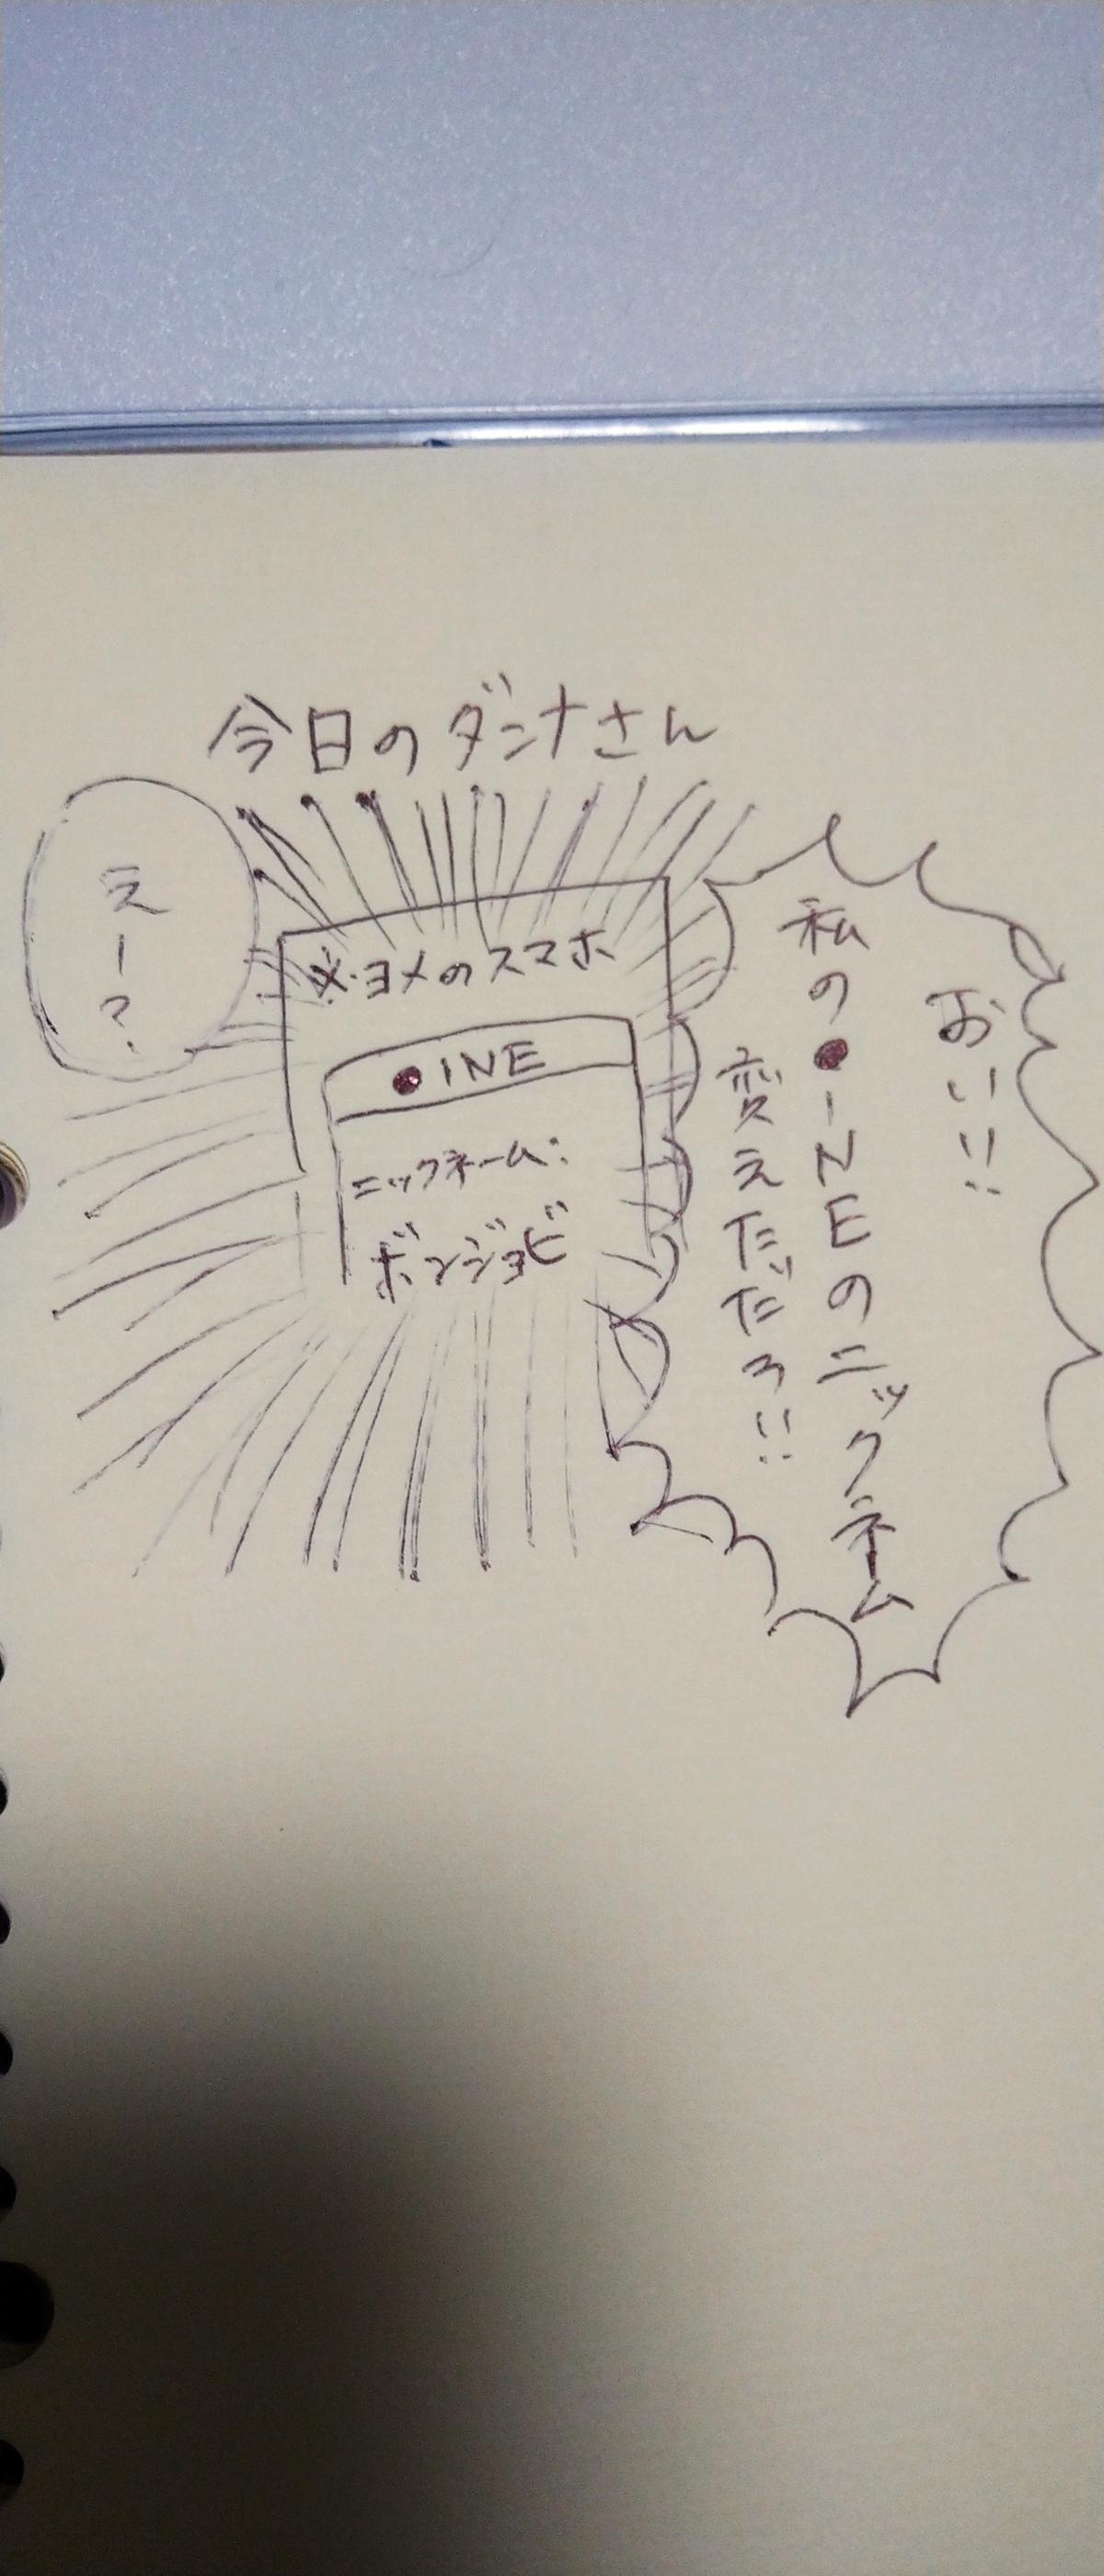 今日のダンナさん
おい!!
私の●INEのニックネーム
変えただろ!!
※ヨメのスマホ
●INE
ニックネーム:
ボンジョビ
えー?